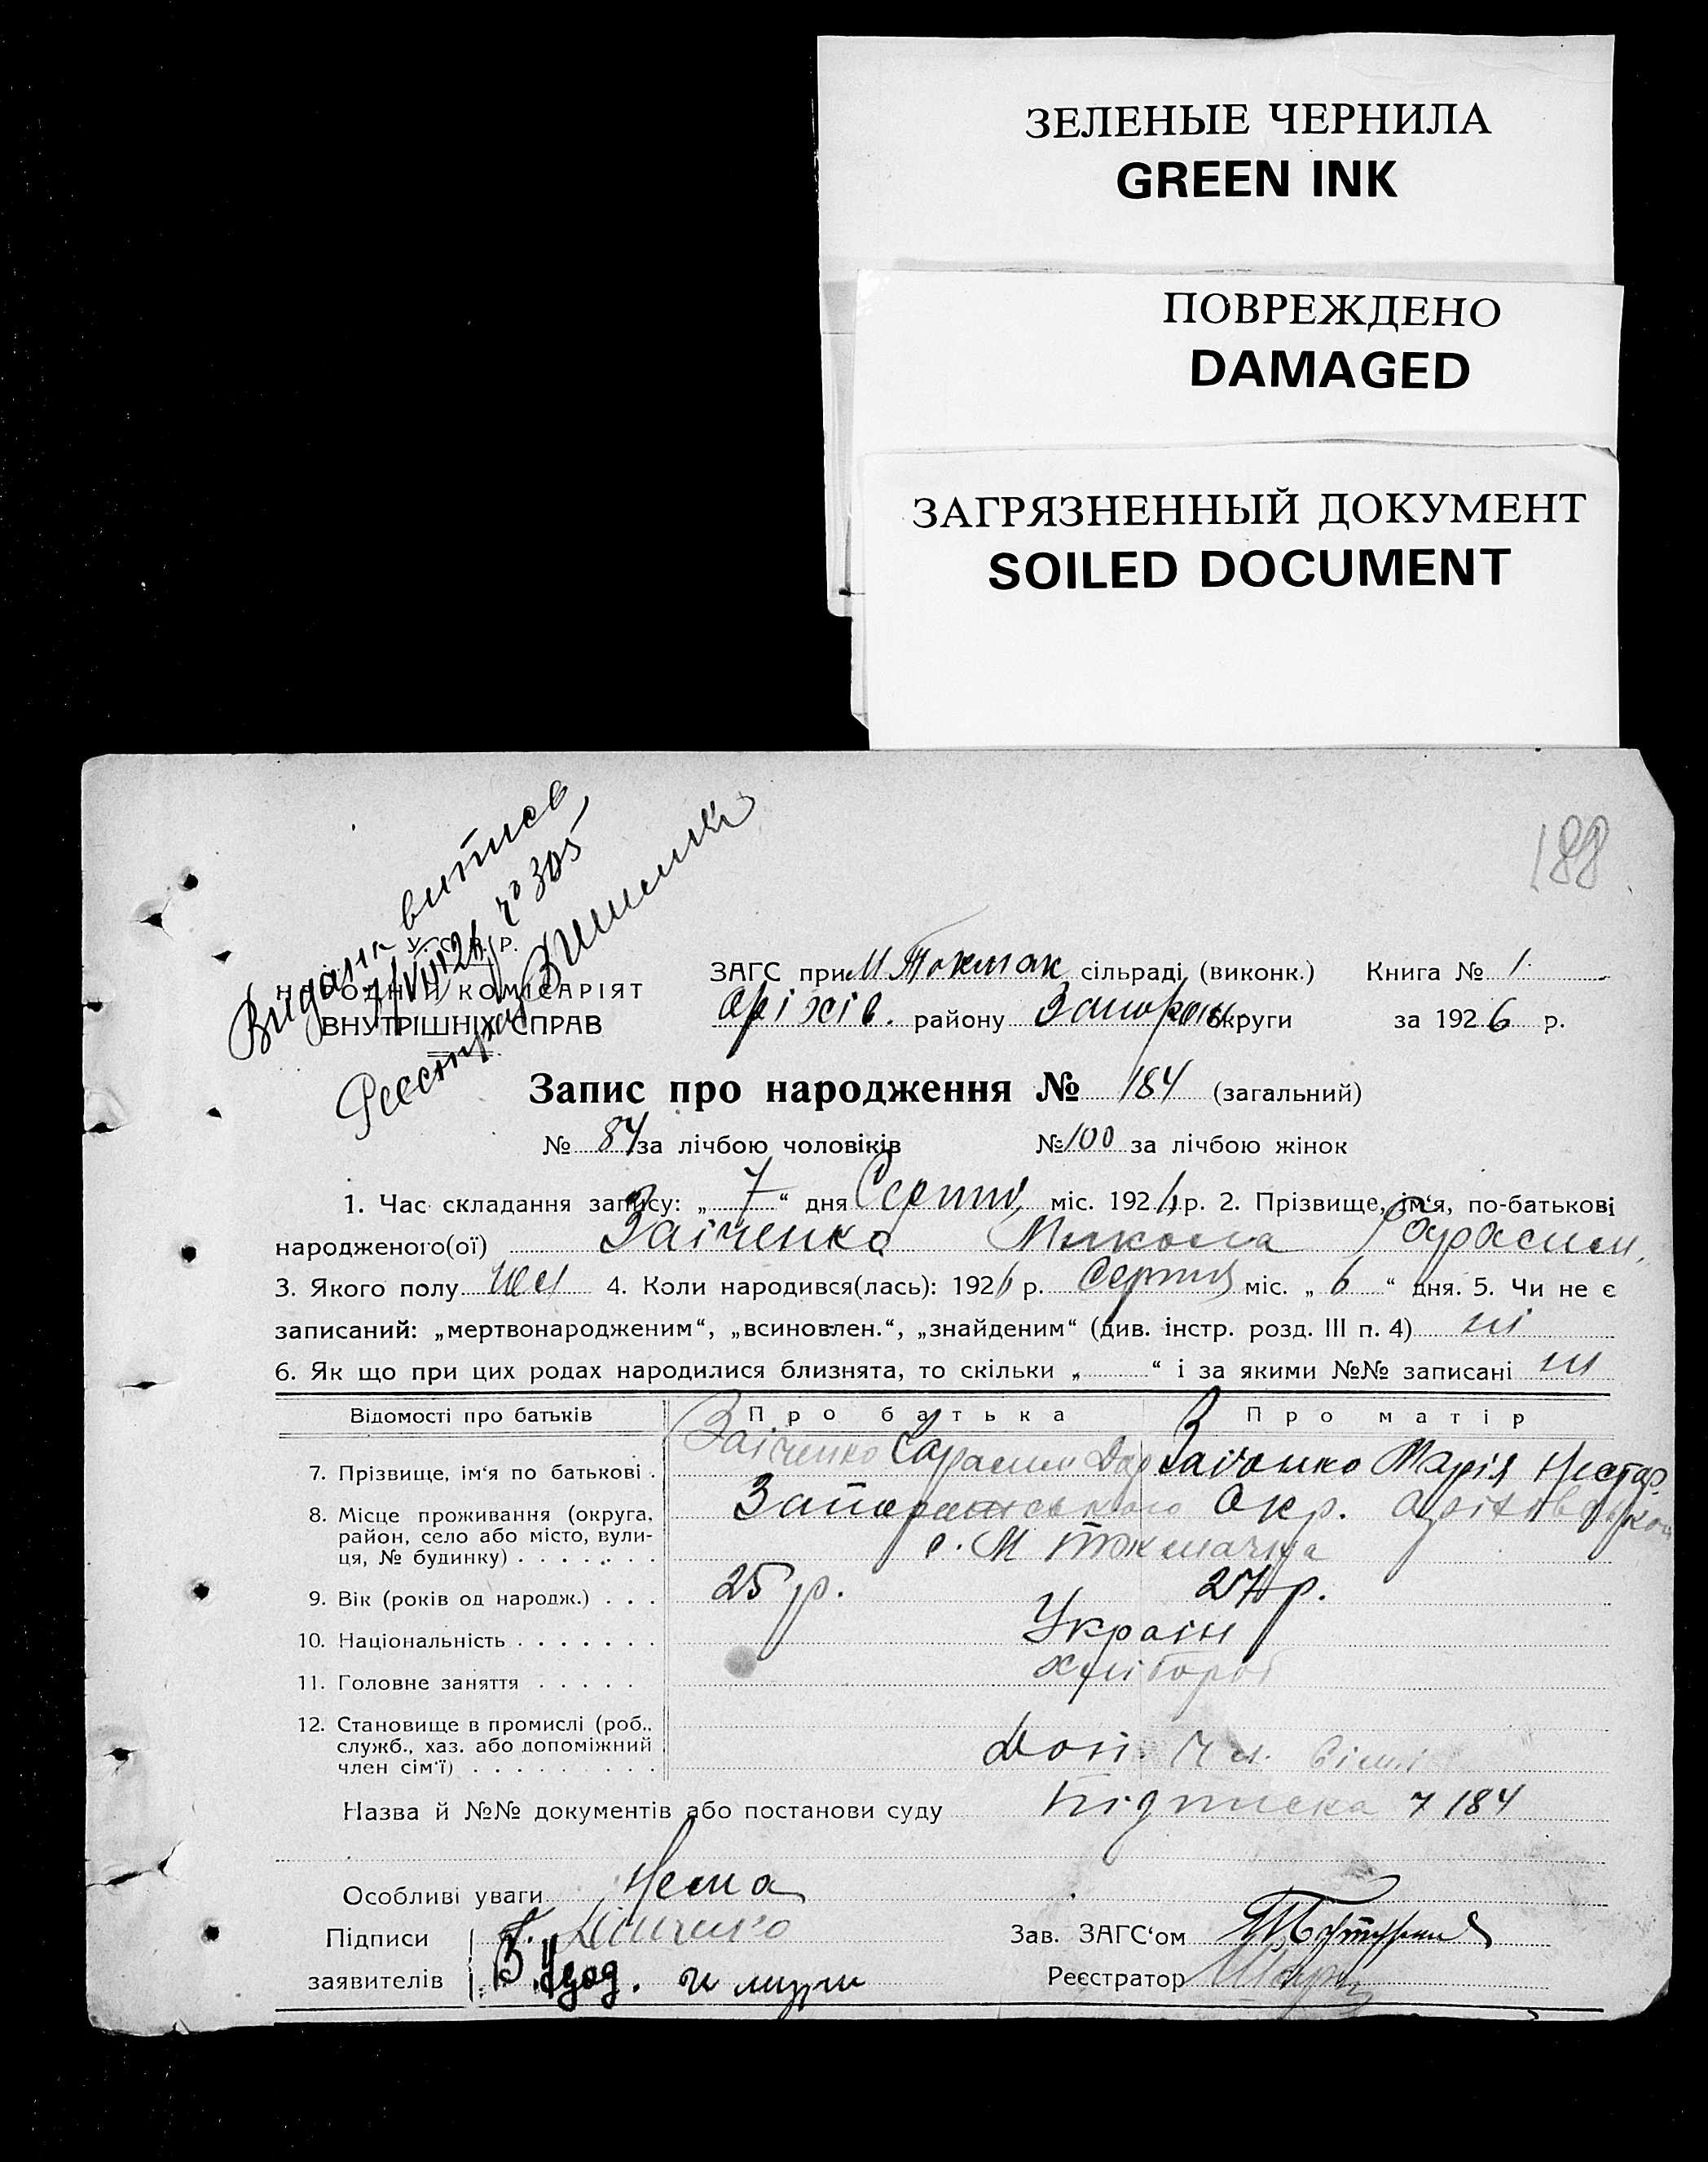 ЗЕЛЕНЫЕ ЧЕРНИЛА
GREEN INK
ПОВРЕЖДЕНО
DAMAGED
ЗАГРЯЗНЕННЫЙ ДОКУМЕНТ
SOILED DOCUMENT
188
Видана витпись
№ 305
У. С. Р. Р.
НАРОДНІЙ КОМІСАРІЯТ
ВНУТРІШНІХ СПРАВ
ЗАГС при М Токмак сільраді (виконк.) Книга № 1
Оріхів. району Запоріж округи за 1926 р.
Запис про народження № 184 (загальний)
№ 84 за лічбою чоловіків № 100 за лічбою жінок
1. Час складання запису: „ 7 “ дня Серпня міс. 1926 р. 2. Прізвище, ім‘я, по-батькові
народженого(ої) Заіченко Микола Гарасим.
3. Якого полу чол 4. Коли народився(лась): 1926 р. Серпня міс. „ 6 “ дня. 5. Чи не є
записаний: „мертвонародженим“, „всиновлен.“, „знайденим“ (див. інстр. розд. III п. 4) ні
6. Як що при цих родах народилися близнята, то скільки „ “ і за якими №№ записані ні
Відомості про батьків Про батька Про матір
7. Прізвище, ім‘я по батькові . Заіченко Гарасим Заіченко Марія Нестар
8. Місце проживання (округа, Запоріжського Окр. Оріхівськ
район, село або місто, вули- с. М Токмачка
ця, № будинку) . . . . . . .
9. Вік (років од народж.) . . . 25 р. 27 р.
10. Національність . . . . . . . Україн
11. Головне заняття . . . . . хлібороб
12. Становище в промислі (роб.,
служб., хаз. або допоміжний
член сім‘ї) . . . . . . . . .
Назва й №№ документів або постанови суду Підписка 184
Особливі уваги Нема
Підписи Зав. ЗАГС‘ом
заявителів Реєстратор